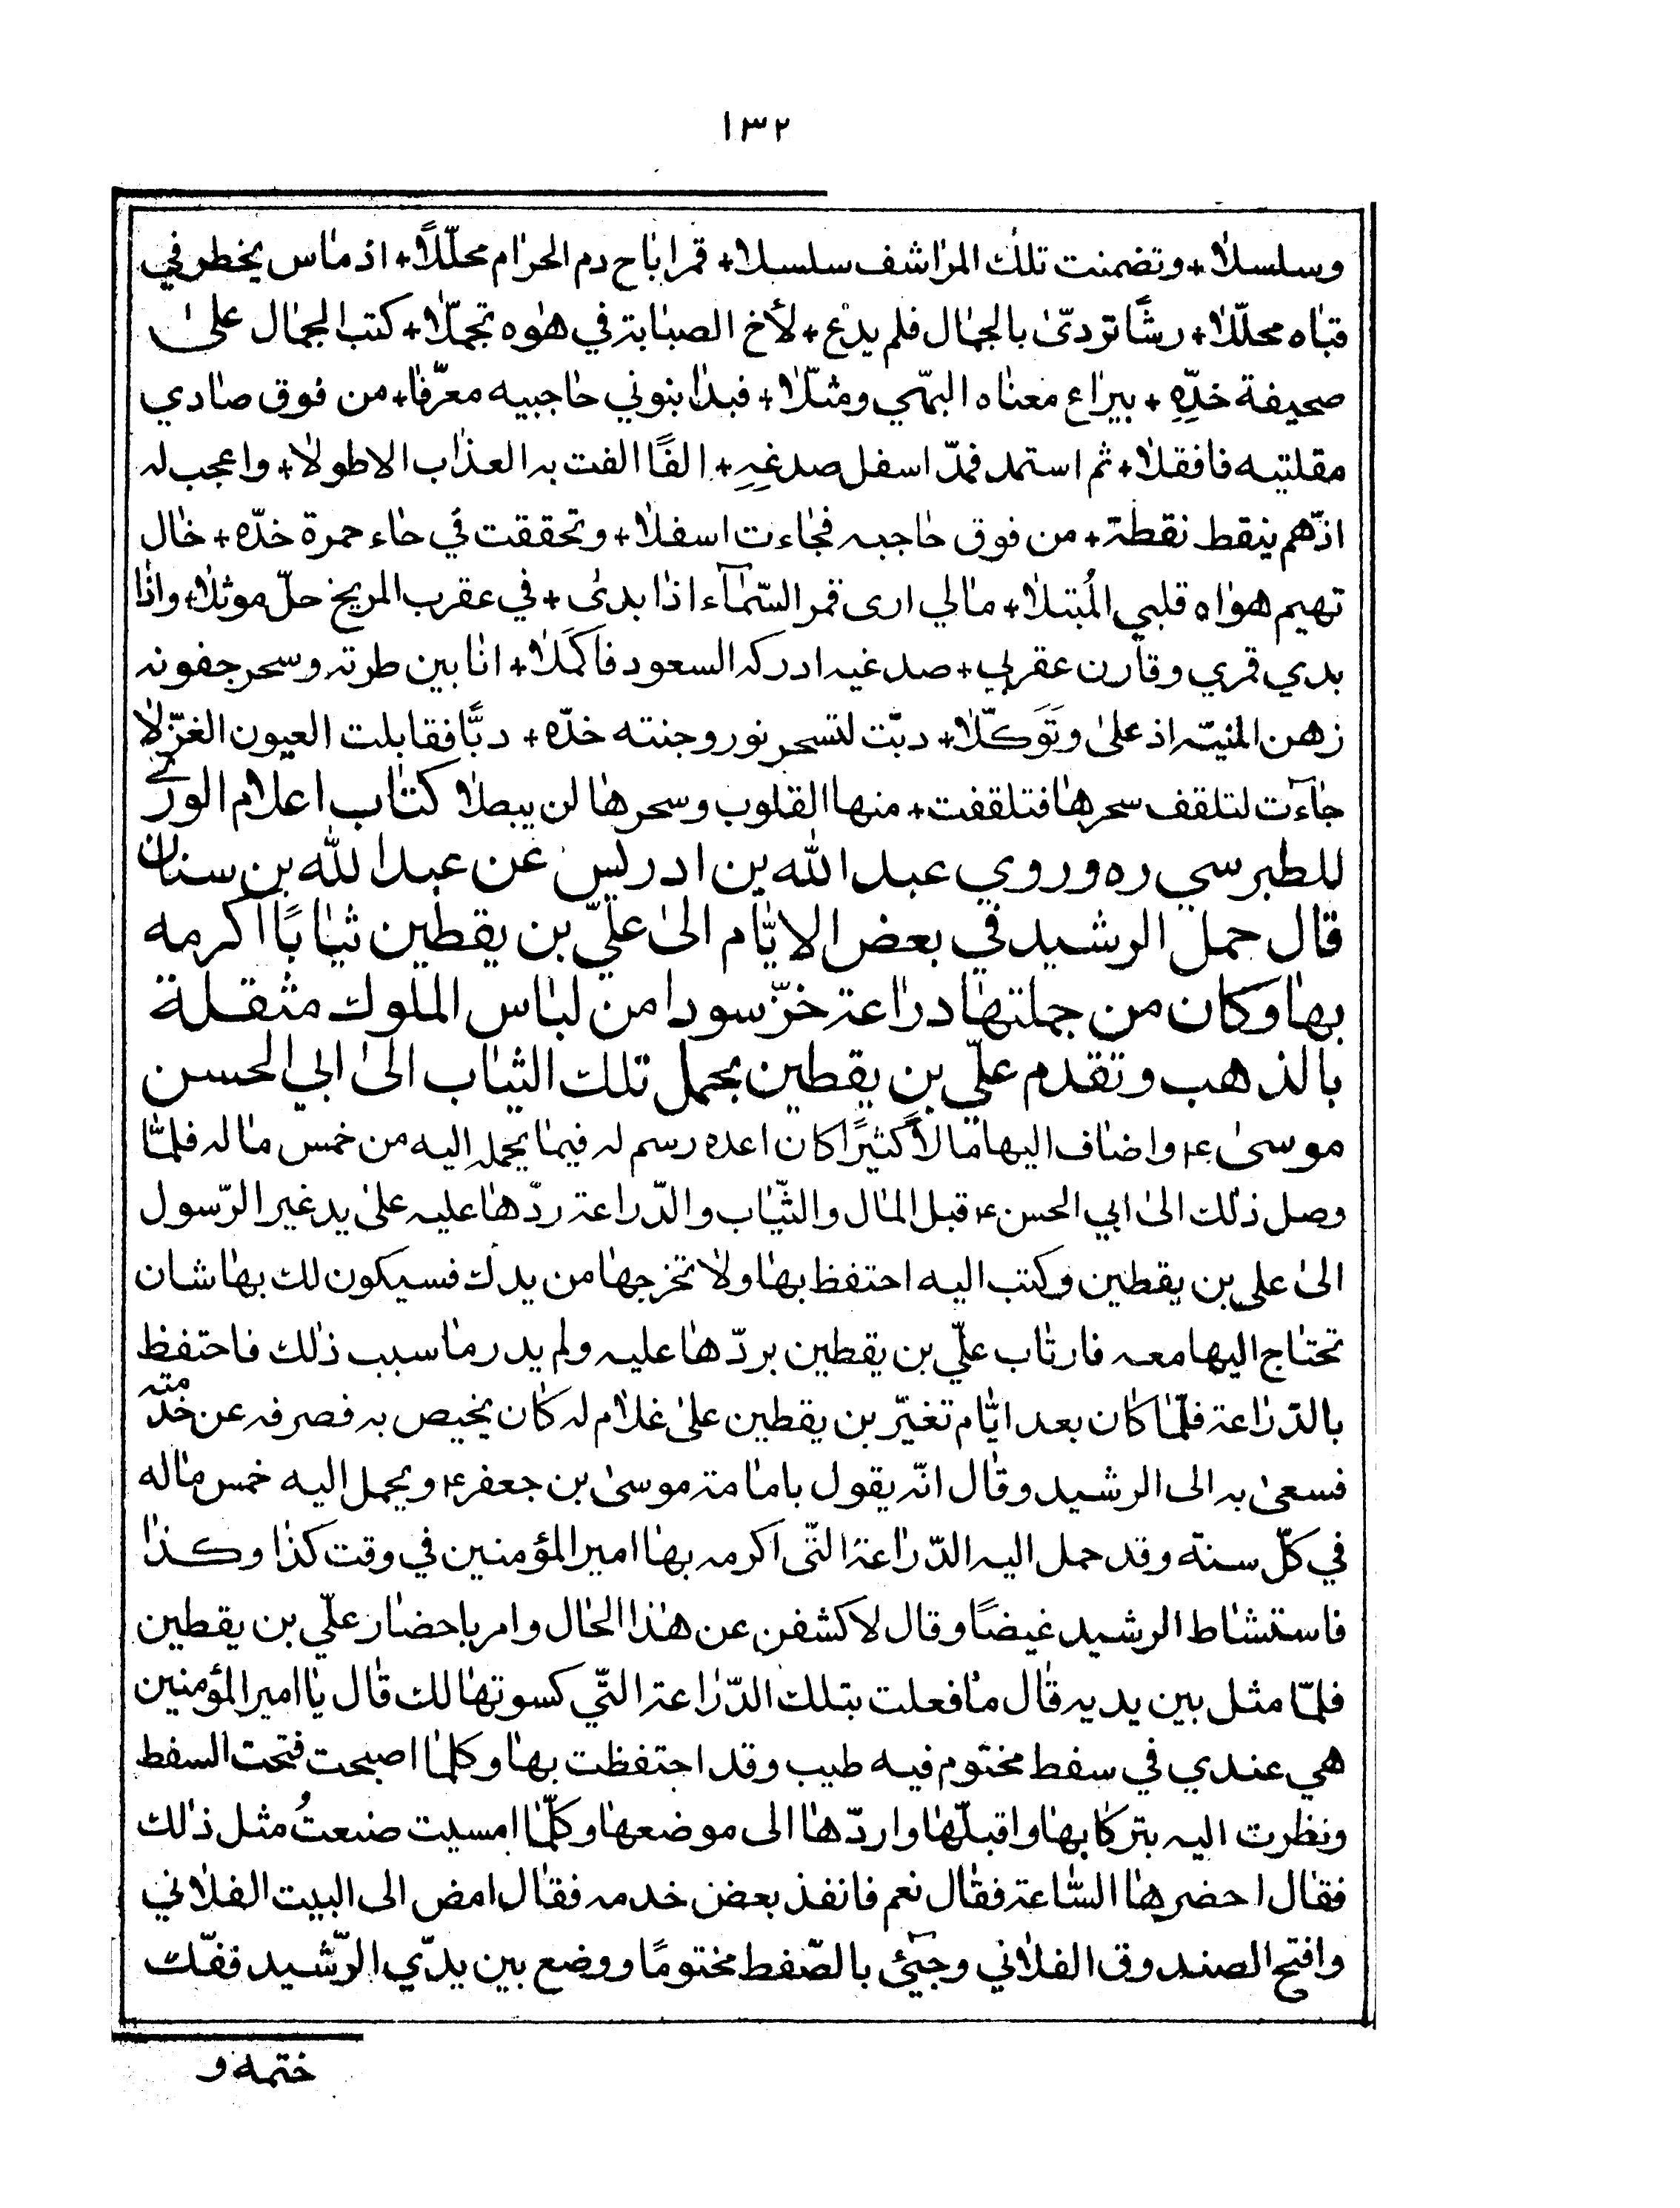 ١٣٢
وسلسلا + وتضمنت تلك المراشف سلسلا + قمرا باح دم الحرام محلّلاً + اذ ماس يخطر في
قباه محلّلا + رشًا تردىّ بالجمال فلم يدع + لأخ الصبابة في هواه تجمّلا + كتب الجمال على
صحيفة خدّهِ + بيراع معناه البهّي ومثّلا + فبدا بنوني حاجبيه معرّفا + من فوق صادي
مقلتيه فاقفلا + ثم استمد فمدّ اسفل صدغِهِ + الفًا الفت به العذاب الاطولا + واعجب له
اذ همّ ينقط نقطة + من فوق حاجبه فجاءت اسفلا + وتحققت في حاء حمرة خدّه + خال
تهيم هواه قلبي المُبتلا + مالي ارى قمر السّمآء اذا بدى + في عقرب المريخ حلّ موئلا + واذا
بدي قمري وقارن عقربي + صدغيه ادركه السعود فاكمَلا + انا بين طرته وسحر جفونه
زهن المنيّه اذ على وتَوَكّلا + دبّت لتسحر نور وجنته خدّه + دبًّا فقابلت العيون الغزّلا
جاءَت لتلقف سحرها فتلقفت + منها القلوب وسحرها لن يبصلا كتاب اعلام الورى
للطبرسي ره وروي عبد الله بن ادريس عن عبد الله بن سنان
قال حمل الرشيد في بعض الايّام الى عليّ بن يقطين ثيابًا اكرمه
بها وكان من جملتها دراعة خزّ سودا من لباس الملوك مثقلة
بالذهب وتقدم عليّ بن يقطين بحمل تلك الثياب الى ابي الحسن
موسى ع واضاف اليها مالاً كثيرًا كان اعده رسم له فيما يحمله اليه من خمس ماله فلمّا
وصل ذلك الى ابي الحسن ع قبل المال والثّياب والدّراعة ردّها عليه على يد غير الرّسول
الى علي بن يقطين وكتب اليه احتفظ بها ولا تخرجها من يدك فسيكون لك بها شان
تحتاج اليها معه فارتاب عليّ بن يقطين بردّها عليه ولم يدر ما سبب ذلك فاحتفظ
بالدّراعة فلمّا كان بعد ايّام تغيّر بن يقطين على غلام له كان يخيص به فصرفه عن خدمته
فسعى به الى الرشيد وقال انّه يقول بامامة موسى بن جعفر ع ويحمل اليه خمس ماله
في كلّ سنة وقد حمل اليه الدّراعة التّى اكرمه بها امير المؤمنين في وقت كذا وكذا
فاستشاط الرشيد غيضًا وقال لاكشفن عن هذا الحال وامر باحضار عليّ بن يقطين
فلمّا مثل بين يديه قال ما فعلت بتلك الدّراعة التّي كسوتها لك قال يا امير المؤمنين
هي عندي في سفط مختوم فيه طيب وقد احتفظت بها وكلما اصبحت فتحت السفط
ونظرت اليه بتركا بها واقبلّها واردّها الى موضعها وكلّما امسيت صنعتُ مثل ذلك
فقال احضرها السّاعة فقال نعم فانفذ بعض خدمه فقال امض الى البيت الفلاني
وافتح الصندوق الفلاني وجيئ بالصّفط مختومًا ووضع بين يديّ الرّشيد ففّك
ختمه و